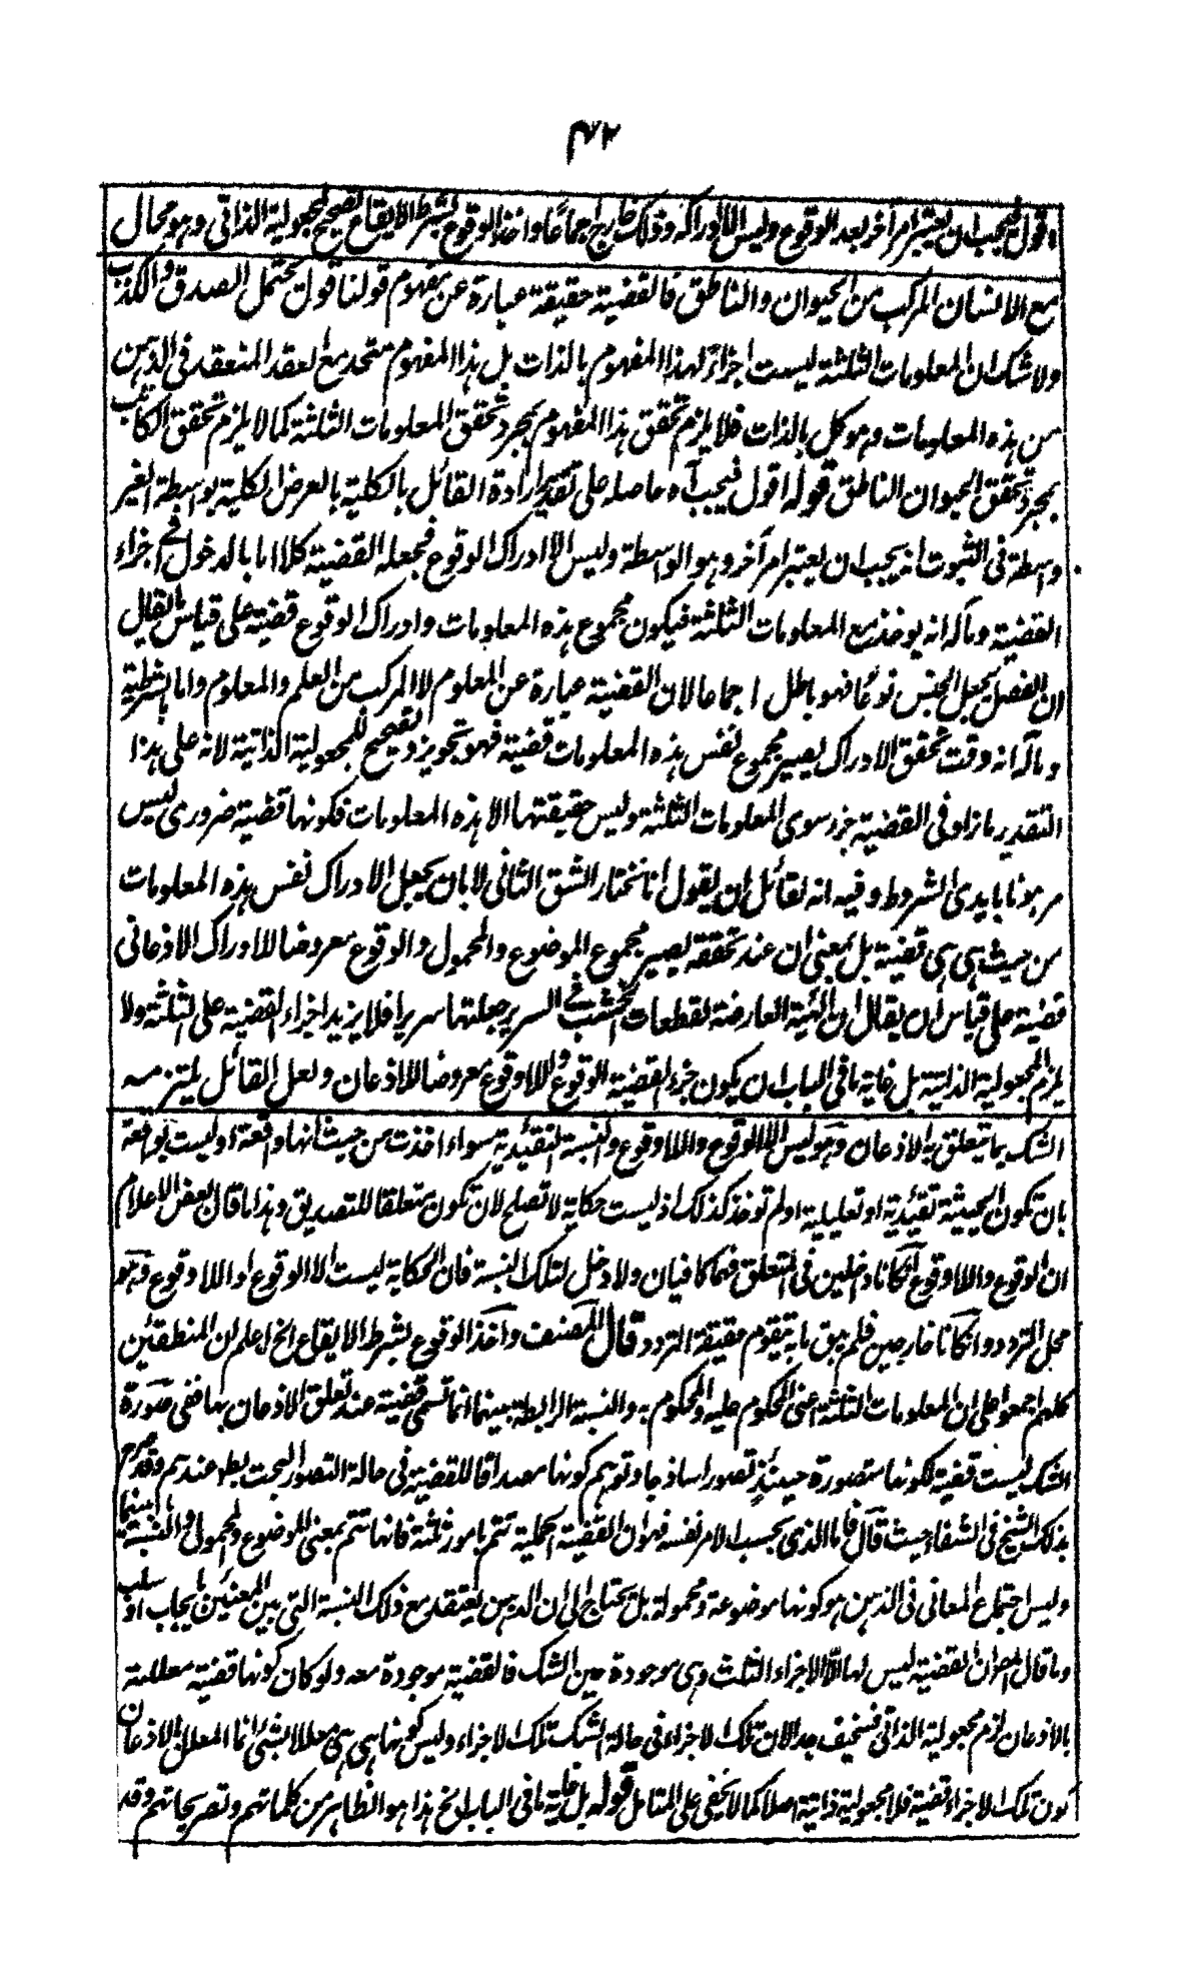 ۴۲
اقول فيجب ان يعتبر امر آخر بعد الوقوع وليس الا ادراكه وذلك خارج اجماعا واخذ الوقوع بشرط الايقاع تصحيح لمجعولية الذاتى وهو محال
مع الانسان المركب من الحيوان والناطق فالقضية حقيقة عبارة عن مفهوم قولنا قول يحتمل الصدق والكذب
ولا شك ان المعلومات الثلثة ليست اجزاء لهذا المفهوم بالذات بل هذا المفهوم متحد مع العقد المنعقد فى الذهن
من هذه المعلومات وهو كل بالذات فلا يلزم تحقق هذا المفهوم بمجرد تحقق المعلومات الثلثة كما لا يلزم تحقق الكاتب
بمجرد تحقق الحيوان الناطق قوله اقول فيجب آه حاصله على تقدير ارادة القائل بالكلية بالعرض الكلية بواسطة الغير
واسطة فى الثبوت انه يجب ان يعتبر امر آخر وهو الواسطة وليس الا ادراك الوقوع فجعله القضية كلا اما بالدخول فى اجزاء
القضية ومآله انه يوخذ مع المعلومات الثلثة فيكون مجموع هذه المعلومات وادراك الوقوع قضية على قياس ما يقال
ان الفصل يجعل الجنس نوعا فهو باطل اجماعا لان القضية عبارة عن المعلوم لا المركب من العلم والمعلوم واما بالشرطية
ومآله انه وقت تحقق الادراك يصير مجموع نفس هذه المعلومات قضية فهو تجويز وتصحيح للمجعولية الذاتية لانه على هذا
التقدير ما زاد فى القضية جزء سوى المعلومات الثلثة وليس حقيقتها الا هذه المعلومات فكونها قضية ضرورى ليس
مرهونا بايدى الشروط وفيه انه لقائل ان يقول انا نختار الشق الثانى لا بان يجعل الادراك نفس هذه المعلومات
من حيث هى هى قضية بل بمعنى ان عند تحققه يصير مجموع الموضوع والمحمول والوقوع معروضا للادراك الاذعانى
قضية على قياس ان يقال ان الهيئة العارضة لقطعات الخشب فى السرير جعلتها سريرا فلا يزيد اجزاء القضية على الثلثة ولا
يلزم المجعولية الذاتية بل غاية ما فى الباب ان يكون جزء القضية الوقوع واللاوقوع معروضا للاذعان ولعل القائل يلتزمه
الشك بما يتعلق به الاذعان وهو ليس الا الوقوع واللاوقوع والنسبة التقئيدية سواء اخذت من حيث انها واقعة او ليست بواقعة
بان تكون الحيثية تقئيدية او تعليلية او لم توخذ كذلك اذ ليست حكاية لا تصلح لان تكون متعلقا للتصديق وهذا ما قال بعض الاعلام
ان الوقوع واللاوقوع ان كانا داخلين فى المتعلق فهما كافيان ولا دخل لتلك النسبة فان الحكاية ليست الا الوقوع او اللاوقوع وهو
محل التردد وان كانا خارجين فلم يبق ما به يتقوم حقيقة التردد قال المصنف واخذ الوقوع بشرط الايقاع الخ اعلم ان المنطقئين
كلهم اجمعوا على ان المعلومات الثلثة اعنى المحكوم عليه والمحكوم به والنسبة الرابطة بينهما انما تسمى قضية عند تعلق الاذعان بها ففى صورة
الشك ليست قضية لكونها متصورة حينئذ تصورا ساذجا وتوهم كونها مصداقا للقضية فى حالة التصور البحت بط عندهم وقد صرح
بذلك الشيخ فى الشفاء حيث قال فاما الذى بحسب الامر نفسه فهو ان القضية الحملية تتم بامور ثلثة فانها تتم بمعنى الموضوع والمحمول والنسبة بينهما
وليس اجتماع المعانى فى الذهن هو كونها موضوعة ومحمولة بل يحتاج الى ان الذهن يعتقد مع ذلك النسبة التى بين المعنيين بايجاب او سلب
وما قال المص ان القضية ليس لها الا الاجزاء الثلث وهى موجودة حين الشك فالقضية موجودة معه ولو كان كونها قضية معللة
بالاذعان لزم مجعولية الذاتى فسخيف جدا لان تلك الاجزاء فى حالة الشك تلك الاجزاء وليس كونها هى هى معللا بشئ انما المعلل بالاذعان
كون تلك الاجزاء قضية فلا مجعولية ذاتية اصلا كما لا يخفى على المتامل قوله بل غاية ما فى الباب الخ هذا هو الظاهر من كلماتهم وتصريحاتهم وقد